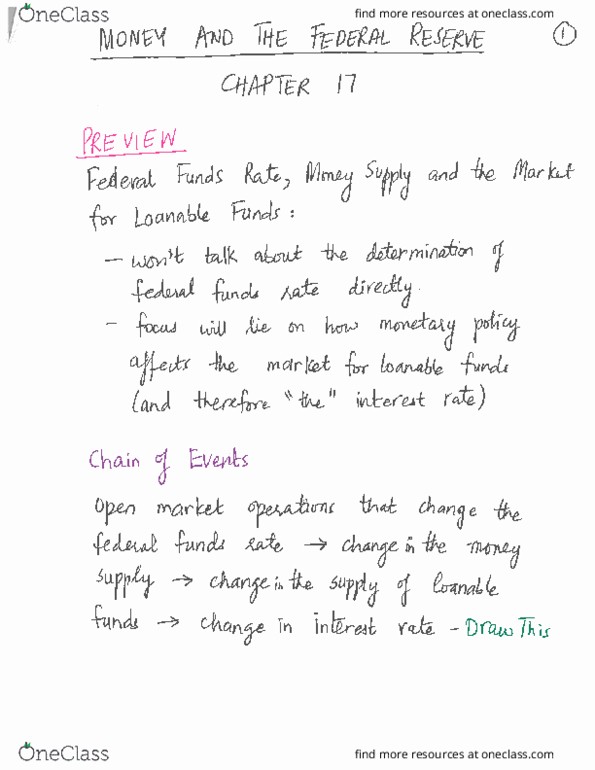 OneClass
find more resources at oneclass.com
MONEY AND THE FEDERAL RESERVE
1
CHAPTER 17
PREVIEW
Federal Funds Rate, Money Supply and the Market
for Loanable Funds:
- won't talk about the determination of
federal funds rate directly.
- focus will lie on how monetary policy
affects the market for loanable funds
(and therefore "the" interest rate)
Chain of Events
Open market operations that change the
federal funds rate → change in the money
supply → change in the supply of loanable
funds → change in interest rate - Draw This
OneClass
find more resources at oneclass.com